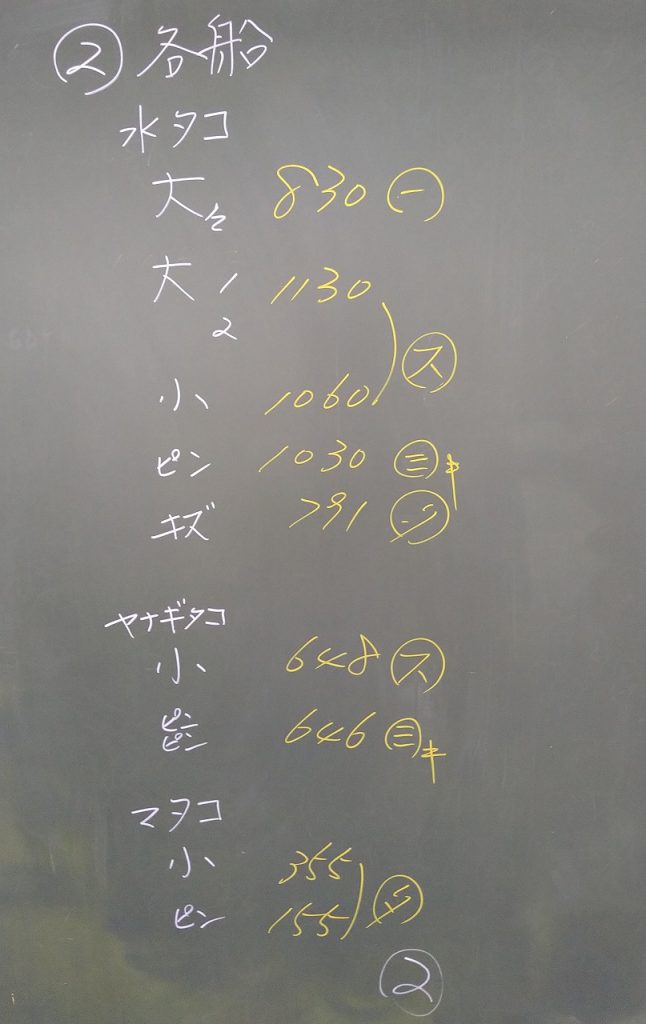 ② 各船
水タコ
大々 830 ㊀
大 1 1130
2
ス
小 1060
ピン 1030 ㊂キ
キズ 791
ヤナギタコ
小 648 ス
ピンピン 646 ㊂キ
マダコ
小 355
ピン 155
②